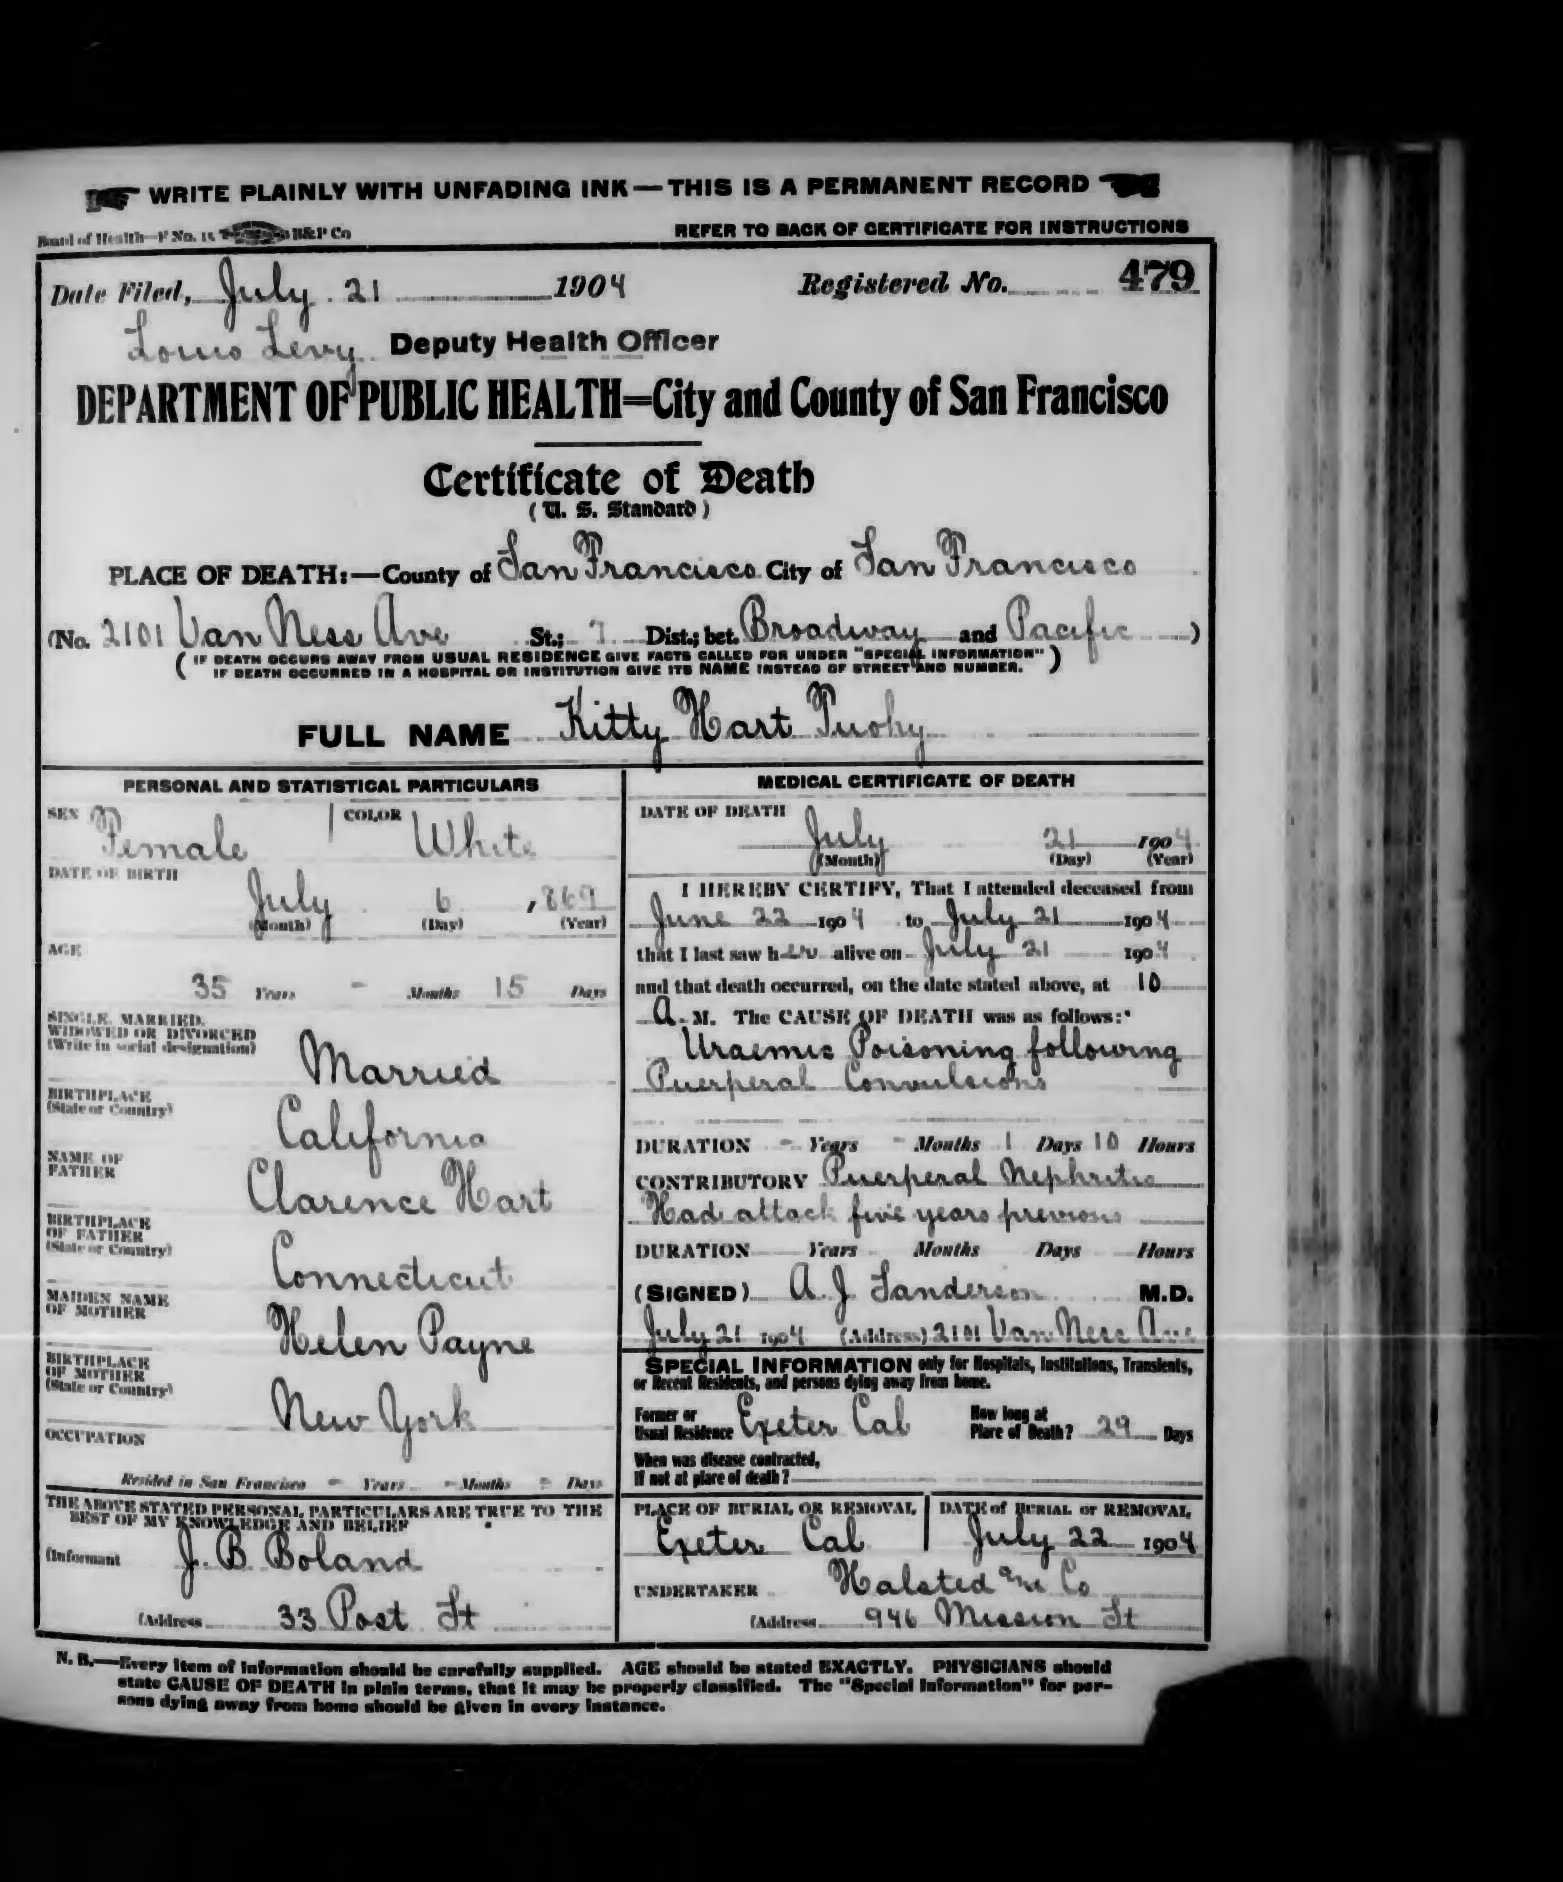 WRITE PLAINLY WITH UNFADING INK—THIS IS A PERMANENT RECORD
Board of Health—F No. 15 B&P Co
REFER TO BACK OF CERTIFICATE FOR INSTRUCTIONS
Date Filed, July 21 1904 Registered No. 479
Louis Levy Deputy Health Officer
DEPARTMENT OF PUBLIC HEALTH=City and County of San Francisco
Certificate of Death
(U. S. Standard)
PLACE OF DEATH:—County of San Francisco City of San Francisco
(No. 2101 Van Ness Ave St.; 7 Dist.; bet. Broadway and Pacific )
( IF DEATH OCCURS AWAY FROM USUAL RESIDENCE GIVE FACTS CALLED FOR UNDER "SPECIAL INFORMATION" )
IF DEATH OCCURRED IN A HOSPITAL OR INSTITUTION GIVE ITS NAME INSTEAD OF STREET AND NUMBER.
FULL NAME Kitty Hart Tuohy
PERSONAL AND STATISTICAL PARTICULARS
SEX Female COLOR White
DATE OF BIRTH
July 6 , 869
(Month) (Day) (Year)
AGE
35 Years - Months 15 Days
SINGLE, MARRIED,
WIDOWED OR DIVORCED
(Write in social designation)
Married
BIRTHPLACE
(State or Country)
California
NAME OF
FATHER
Clarence Hart
BIRTHPLACE
OF FATHER
(State or Country)
Connecticut
MAIDEN NAME
OF MOTHER
Helen Payne
BIRTHPLACE
OF MOTHER
(State or Country)
New York
OCCUPATION
Resided in San Francisco - Years - Months - Days
THE ABOVE STATED PERSONAL PARTICULARS ARE TRUE TO THE
BEST OF MY KNOWLEDGE AND BELIEF
(Informant J. B. Boland
(Address 33 Post St
MEDICAL CERTIFICATE OF DEATH
DATE OF DEATH
July 21 1904
(Month) (Day) (Year)
I HEREBY CERTIFY, That I attended deceased from
June 22 1904 to July 21 1904
that I last saw her alive on July 21 1904
and that death occurred, on the date stated above, at 10
A. M. The CAUSE OF DEATH was as follows:
Uraemic Poisoning following
Puerperal Convulsions
DURATION - Years - Months 1 Days 10 Hours
CONTRIBUTORY Puerperal Nephritis
Had attack five years previous
DURATION Years Months Days Hours
(SIGNED) A. J. Sanderson M.D.
July 21 1904 (Address) 2101 Van Ness Ave
SPECIAL INFORMATION only for Hospitals, Institutions, Transients,
or Recent Residents, and persons dying away from home.
Former or
Usual Residence Exeter Cal
How long at
Place of Death? 29 Days
When was disease contracted,
If not at place of death?
PLACE OF BURIAL OR REMOVAL
Exeter Cal
DATE of BURIAL or REMOVAL
July 22 1904
UNDERTAKER Halsted and Co
(Address 946 Mission St
N. B.—Every item of information should be carefully supplied. AGE should be stated EXACTLY. PHYSICIANS should
state CAUSE OF DEATH in plain terms, that it may be properly classified. The "Special Information" for per-
sons dying away from home should be given in every instance.